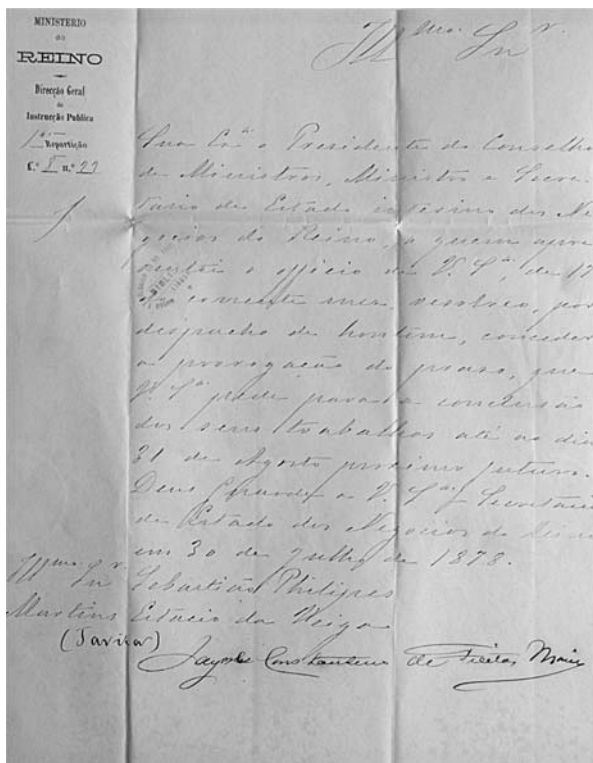 MINISTERIO
do
REINO
Direcção Geral
de
Instrucção Publica
1ª Repartição
L.º 8 n.º
Ill.mo Snr.
Sua Exª o Presidente do Conselho
de Ministros, Ministro e Secre-
tario de Estado interino dos Ne
gocios do Reino, a quem apre
sentei o officio de V. Sª de 17
do corrente mez, resolveu, por
despacho de hontem, conceder
a prorogação do praso, que
V. Sª pede para a conclusão
dos seus trabalhos até ao dia
31 de Agosto proximo futuro.
Deus Guarde a V. Sª Secretaria
de Estado dos Negocios do Reino
em 30 de Julho de 1878.
Ill.mo Snr. Sebastião Philippes
Martins Estacio da Veiga
(Tavira)
Jayme Constantino de Freitas Moniz